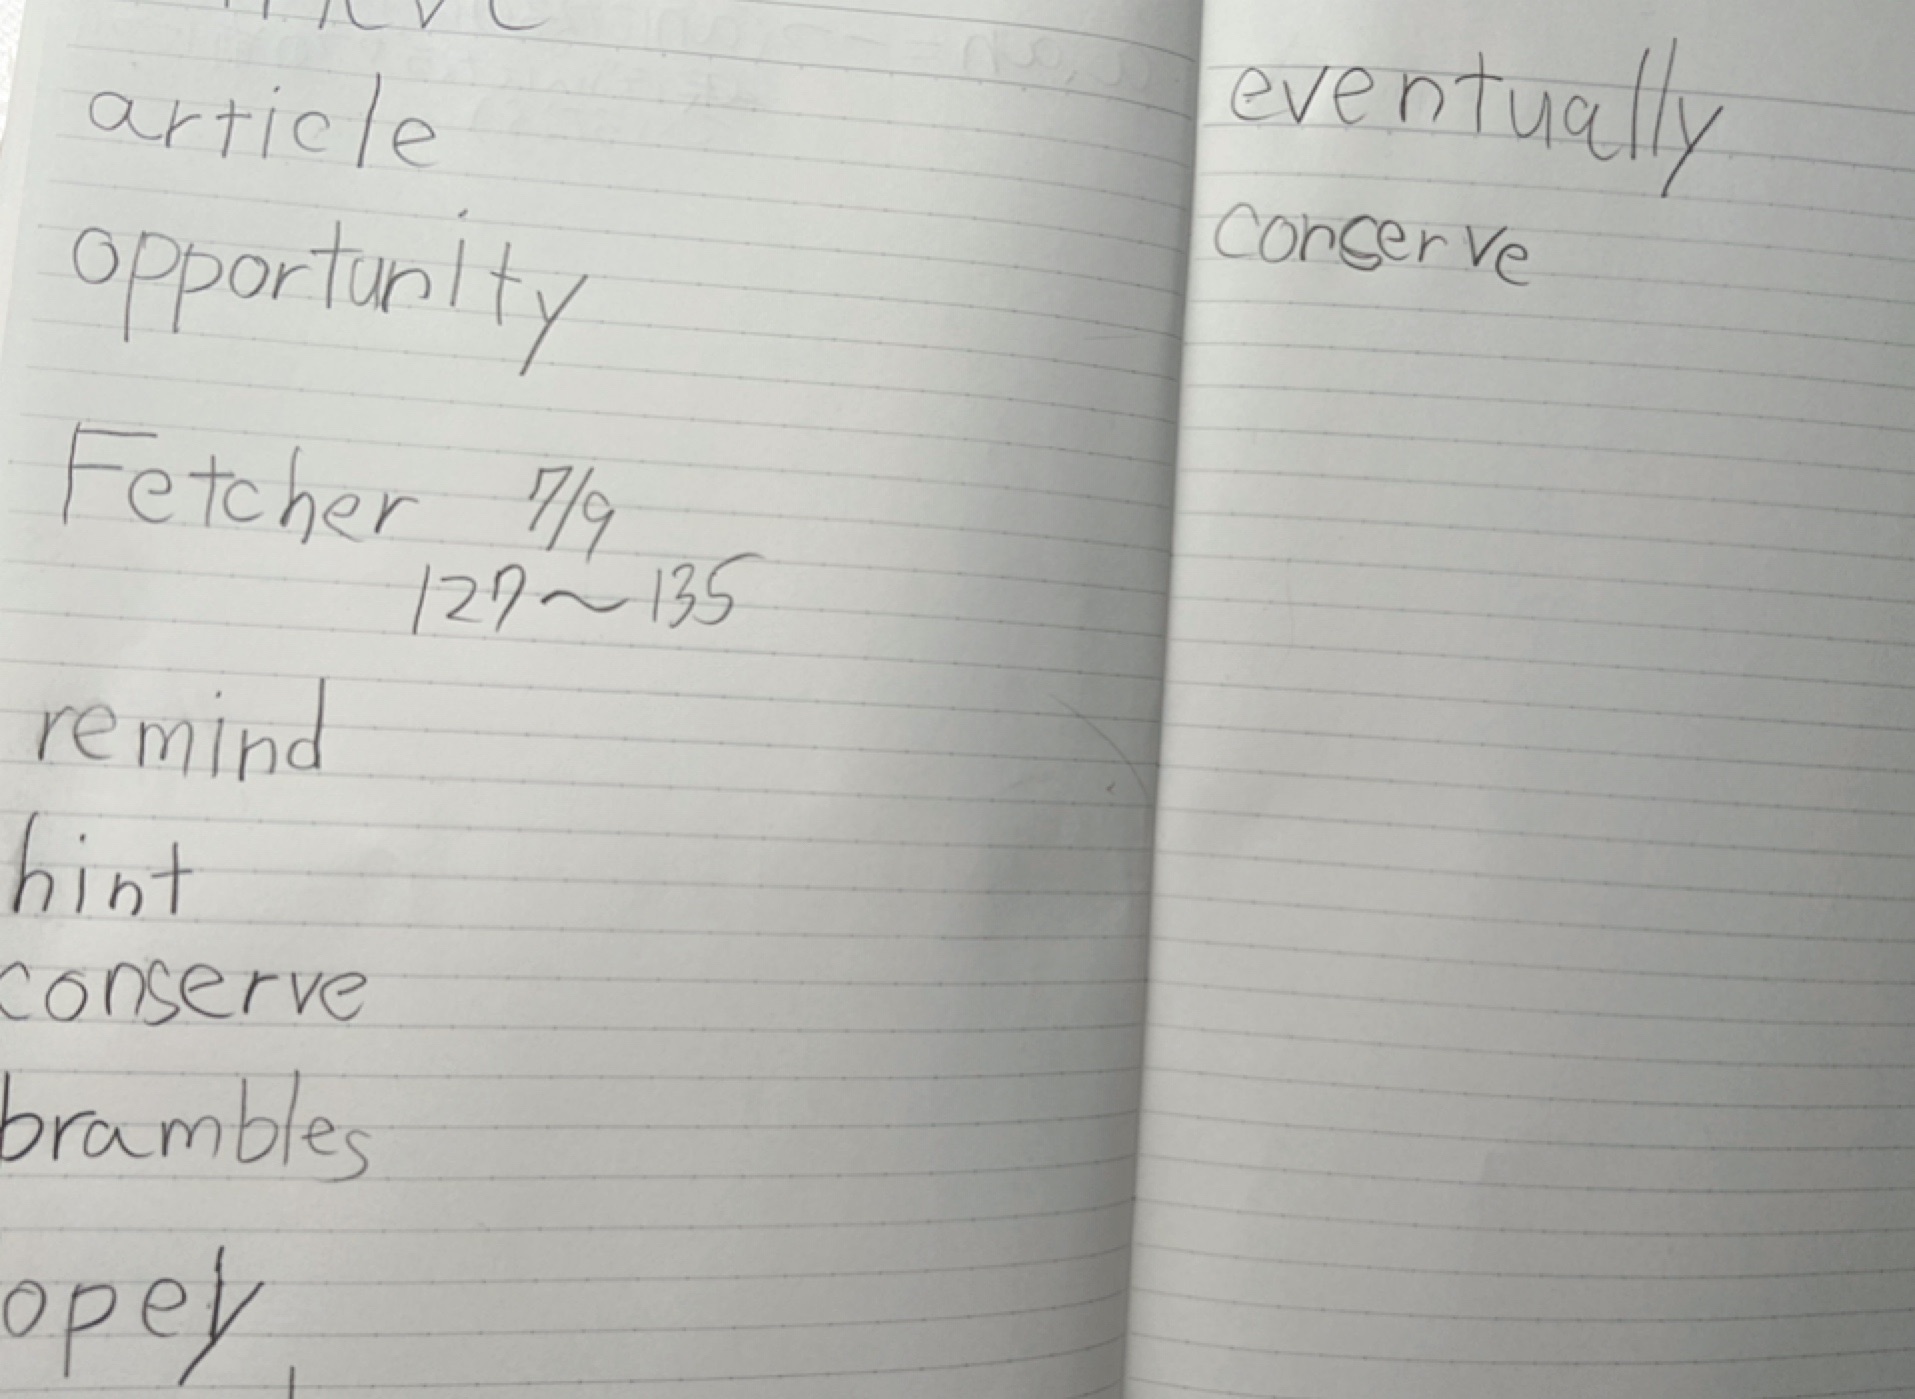 article
opportunity
Fetcher 7/9
127～135
remind
hint
conserve
brambles
eventually
conserve